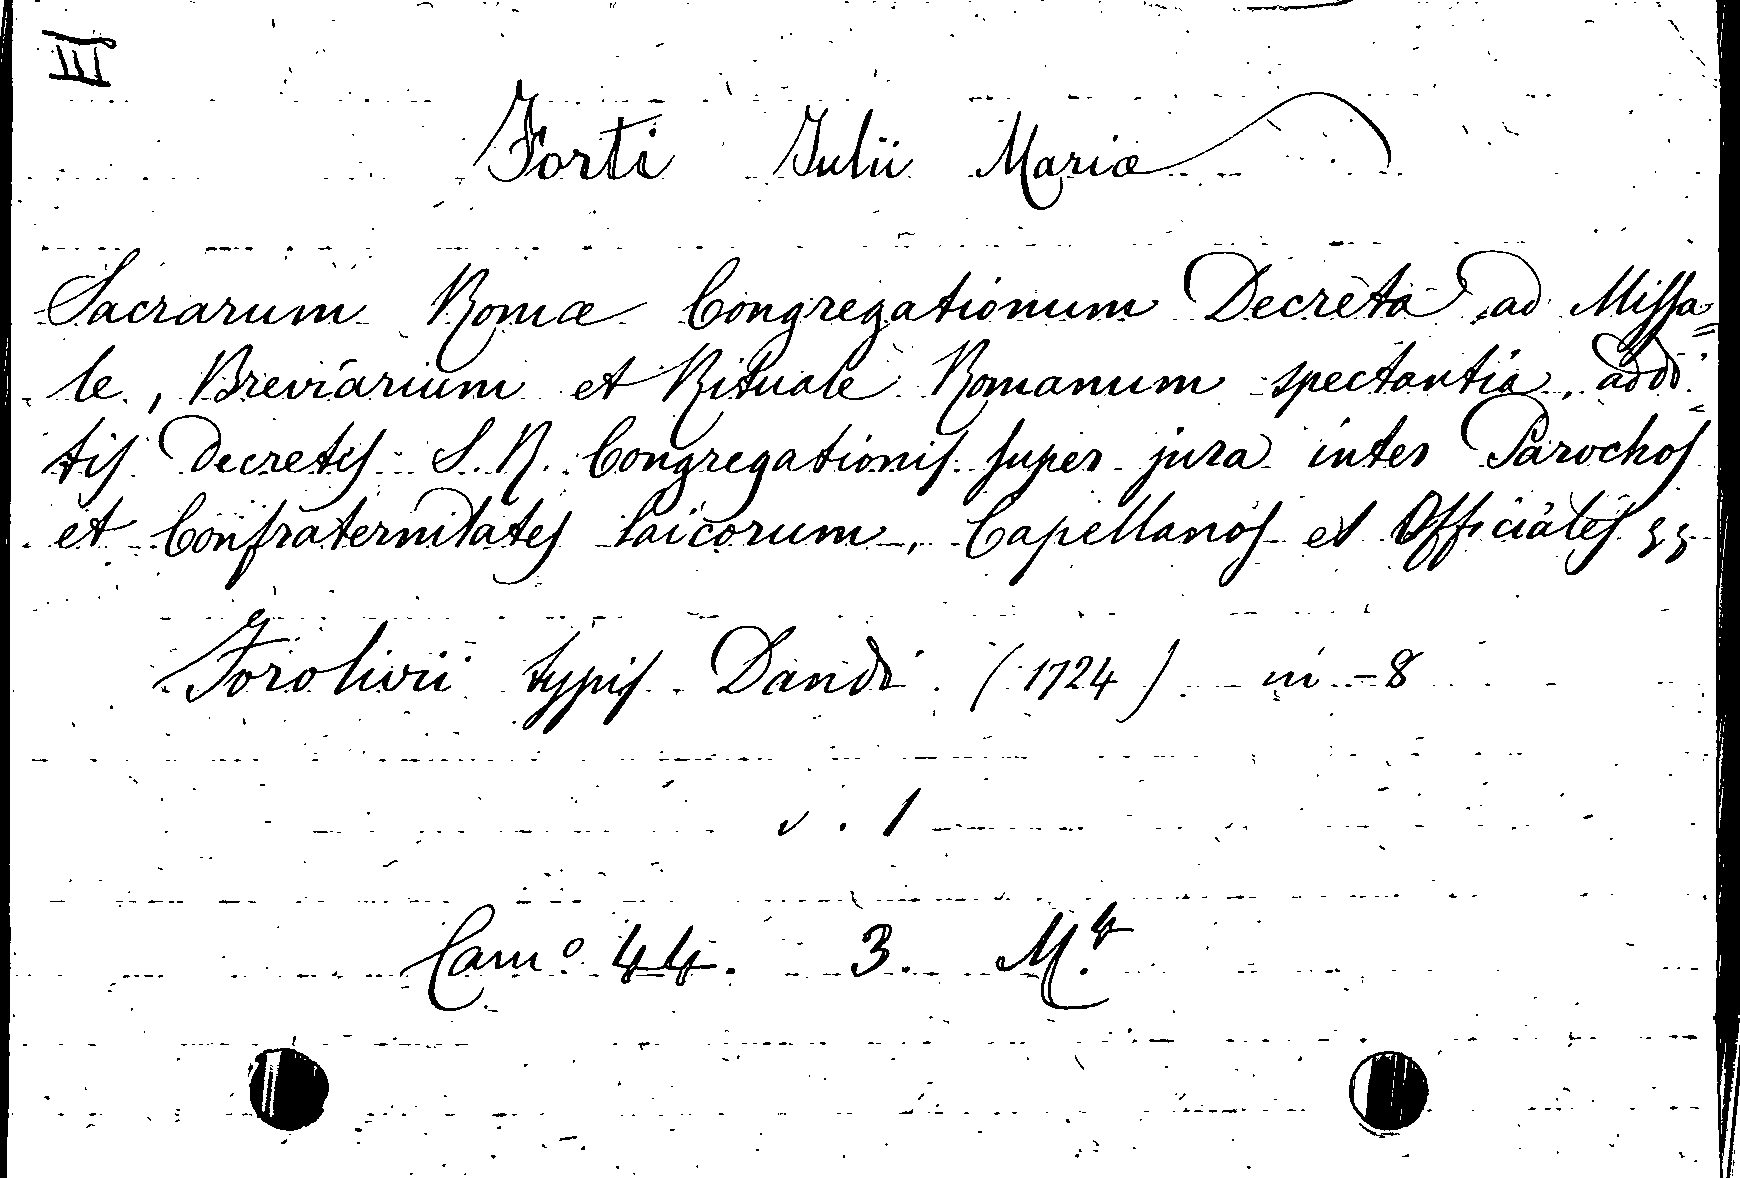 III
Forti Julii Mariæ
Sacrarum Romæ Congregationum Decreta ad Missa=
le, Breviarium et Rituale Romanum spectantia, addi=
tis Decretis S. R. Congregationis super jura inter Parochos
et Confraternitates laicorum, Capellanos et Officiales
Forolivii typis Dandi (1724) in-8
v. 1
Cam.º 44. 3. M.4